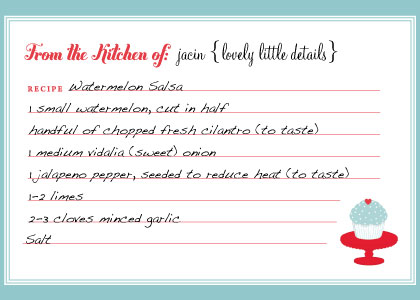 From the Kitchen of: jacin {lovely little details}
RECIPE Watermelon Salsa
1 small watermelon, cut in half
handful of chopped fresh cilantro (to taste)
1 medium vidalia (sweet) onion
1 jalapeno pepper, seeded to reduce heat (to taste)
1-2 limes
2-3 cloves minced garlic
Salt